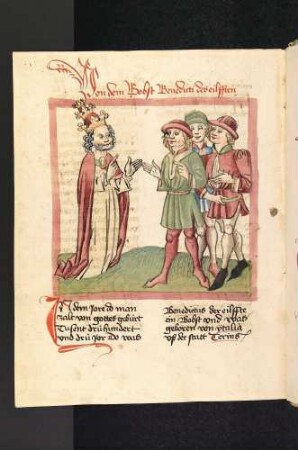 Von dem Bobst Benedicti der eilfften
In dem Jore do man
zalt von gottes geburt
Tusent druhundert
vnd drü Jor do was
Benedictus der eilffte
ein Bobst vnd was
geboren von ytalia
vs der statt